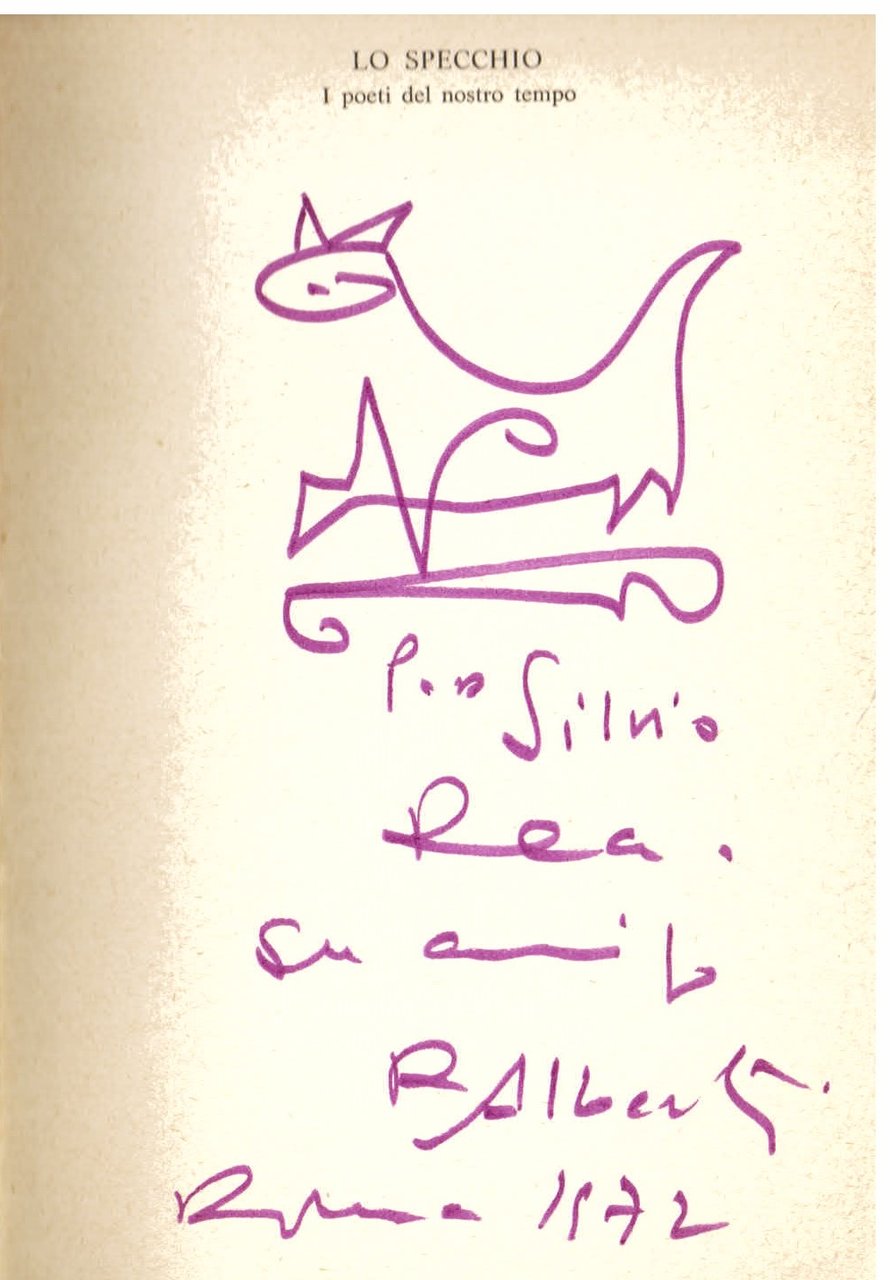 LO SPECCHIO
I poeti del nostro tempo
Silvio
Rea.
su
R Alberti.
Roma 1972